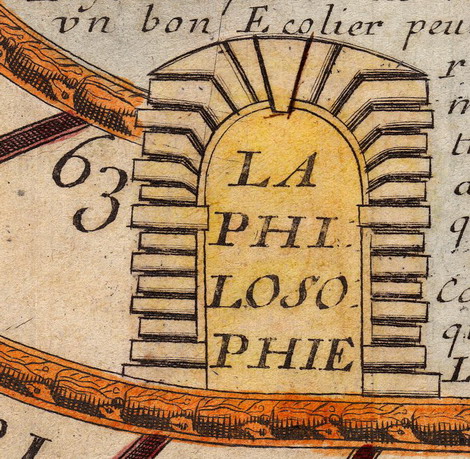 vn bon Ecolier peu
63
LA
PHI
LOSO
PHIE